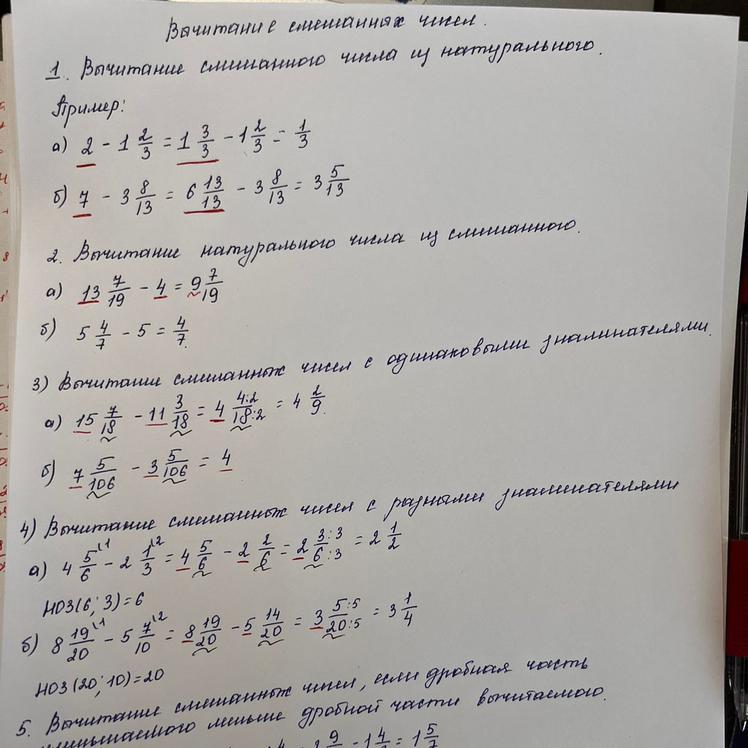 Вычитание смешанных чисел.
1. Вычитание смешанного числа из натурального.
Пример:
а) 2 - 1 2/3 = 1 3/3 - 1 2/3 = 1/3
б) 7 - 3 8/13 = 6 13/13 - 3 8/13 = 3 5/13
2. Вычитание натурального числа из смешанного.
а) 13 7/19 - 4 = 9 7/19
б) 5 4/7 - 5 = 4/7.
3) Вычитание смешанных чисел с одинаковыми знаминателями.
а) 15 7/18 - 11 3/18 = 4 4:2/18:2 = 4 2/9.
б) 7 5/106 - 3 5/106 = 4
4) Вычитание смешанных чисел с разными знаминателями
а) 4 5/6 \1 - 2 1/3 \2 = 4 5/6 - 2 2/6 = 2 3:3/6:3 = 2 1/2
НОЗ(6; 3)=6
б) 8 19/20 \1 - 5 7/10 \2 = 8 19/20 - 5 14/20 = 3 5:5/20:5 = 3 1/4
НОЗ(20; 10)=20
5. Вычитание смешанных чисел, если дробная часть
уменьшаемого меньше дробной части вычитаемого.
= 1 5/7